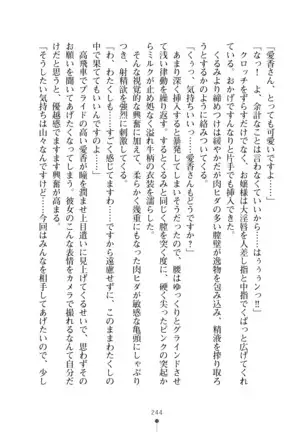 「愛香さん、とっても可愛いですよ」
「なっ！　よ、余計なこと言わなくて……はぅぅンっ‼」
クロッチをずらすだけでなく、お嬢様は大淫唇を人差し指と中指でくぱぁと広げてくれ
ている。おかげですんなりと片手でも挿入できた。
くるみより締めつけは緩やかだが肉ヒダの多い膣壁が逸物を包み込み、精液を搾り取ろ
うとするように絡みついてくる。
「くぅっ、気持ちいい……愛香さんもどうですか？」
あまり深く挿入すると暴発してしまいそうだったので、腰はゆっくりとグラインドさせ
浅い律動に止める。そしてくるみと同じく膣を突く度に、硬く尖ったピンクの突起か
らミルクがぴゅるぴゅると溢れ牛柄の衣装を濡らした。
視覚的な興奮に加えて、柔らかく幾重にも重なった肉ヒダが敏感な亀頭にしゃぶり
つき、射精欲を強烈に刺激してくる。
「わ、わたくしも……すごく感じてますわ……ですから遠慮せずに……このままわたくし
の膣内に出してもいいんですのよ……」
高飛車でプライドの高い愛香が瞳を潤ませ上目遣いに見上げてくるせいで、思わずその
お願いを聞いてあげたくなってしまう。彼女のこんな表情をカメラで撮れるなんて自分だ
けだと思うと、優越感でますます興奮が高まる。
「そうしたい気持ちは山々なんですけど……今回はみんなを相手してあげたいので、少し
244